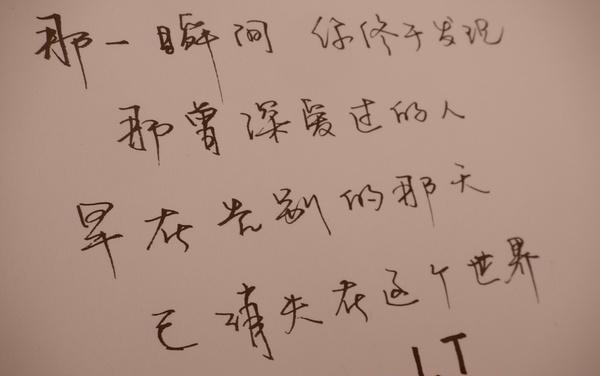 那一瞬间 你终于发现
那曾深爱过的人
早在告别的那天
已消失在这个世界
LT